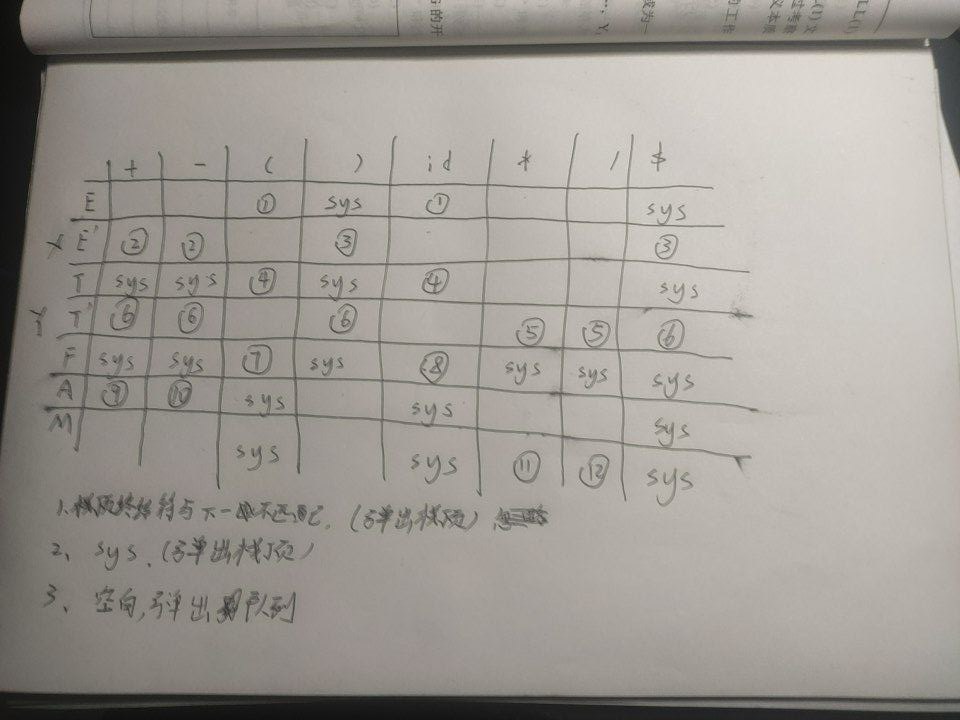 + - ( ) id * / $
E ① sys ① sys
E' ② ② ③ ③
T sys sys ④ sys ④ sys
T' ⑥ ⑥ ⑥ ⑤ ⑤ ⑥
F sys sys ⑦ sys ⑧ sys sys sys
A ⑨ ⑩ sys sys sys
M sys sys ⑪ ⑫ sys
1. 栈顶终结符与下一个不匹配. (弹出栈顶)
2、 sys. (弹出栈顶)
3、 空白, 弹出队列